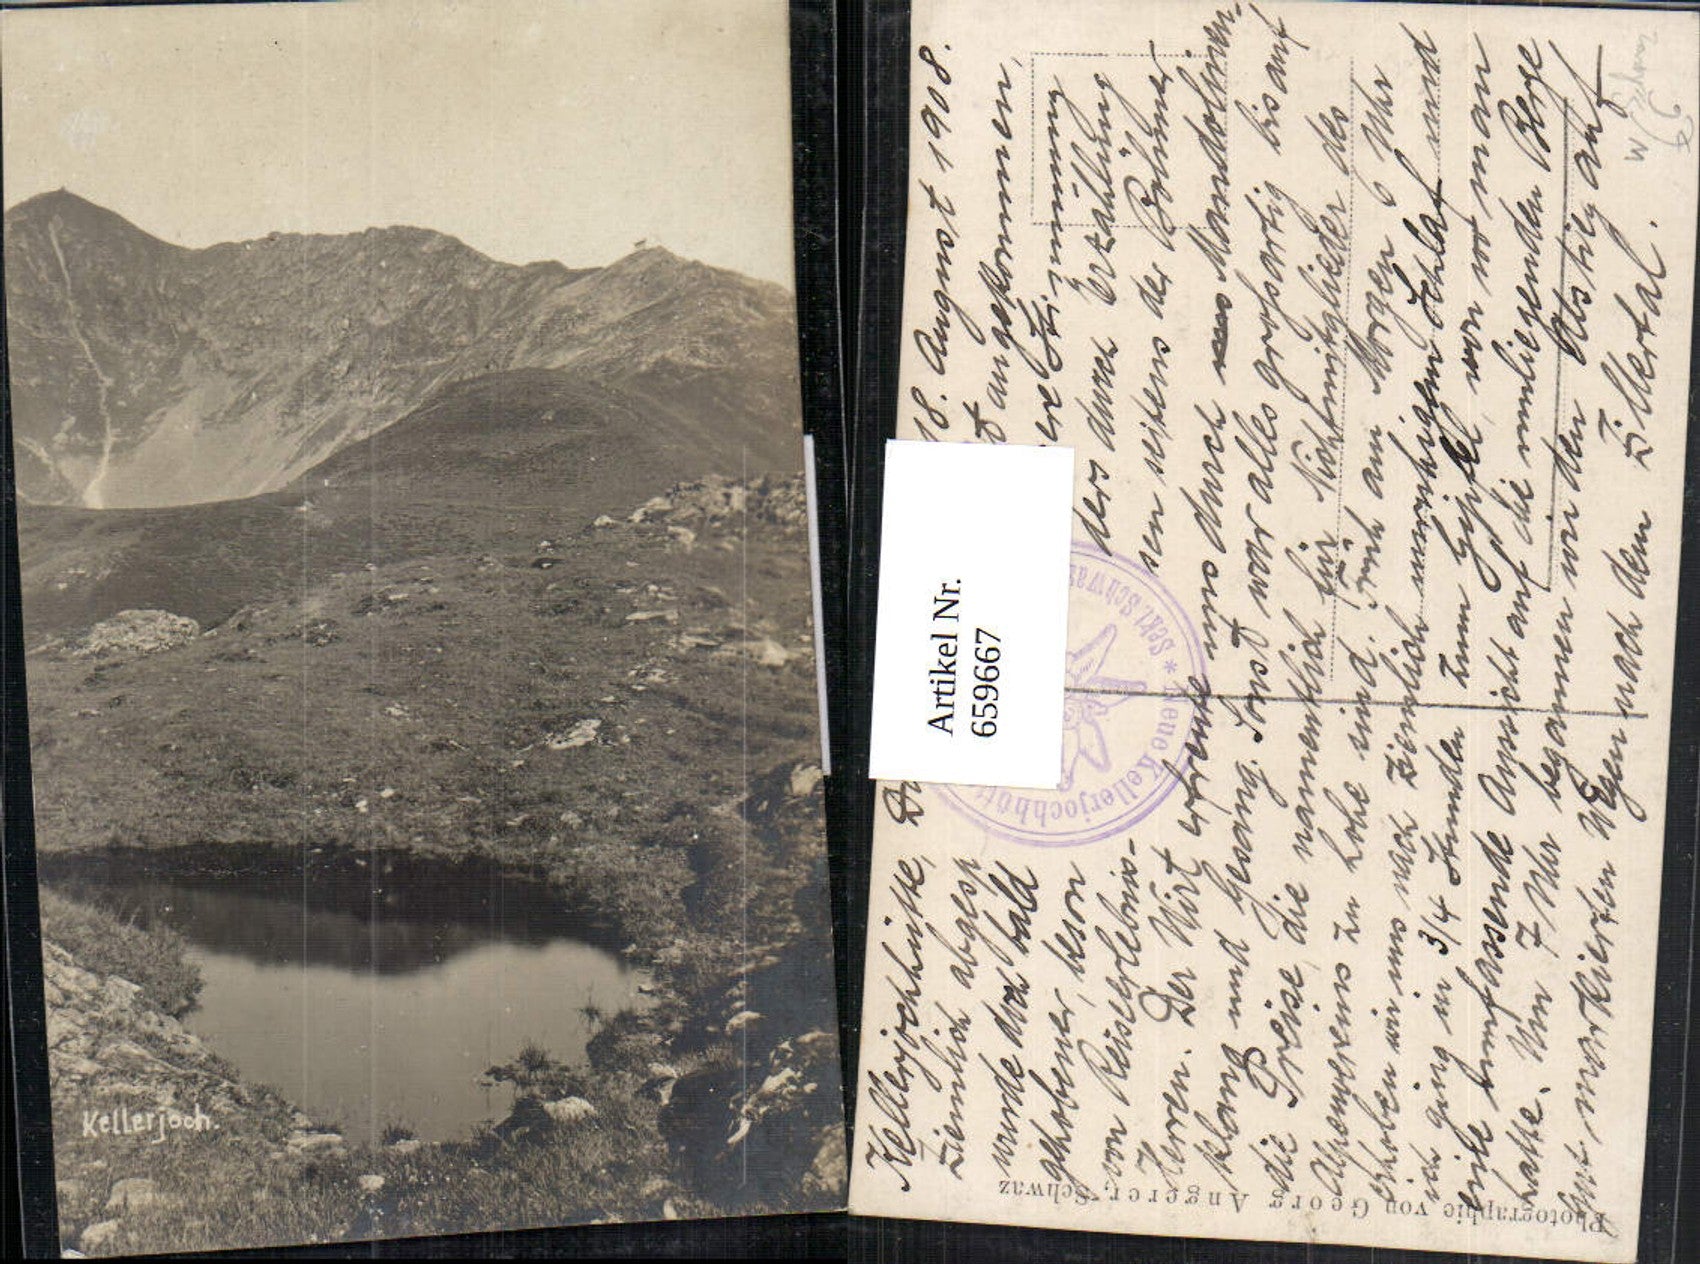 Kellerjoch.
Artikel Nr.
6596667
Kellerjochhütte, 18. August 1908.
ziemlich abgesp angekommen,
wurde doch bald Stimmung
gehobener, beson ders durch Erzählung
von Reiseerlebnis- sen seitens der Böhmer
Herren. Der Wirt erfreute uns durch Mandolinen-
klang und Gesang. Sonst war alles großartig bis auf
die Preise, die namentlich für Nichtmitglieder des
Alpenvereins zu hohe sind. Früh am Morgen 6 Uhr
erhoben wir uns nach ziemlich unruhigem Schlaf und
ich ging in 3/4 Stunden zum Gipfel, von wo man
eine umfassende Aussicht auf die umliegenden Berge
hatte. Um 7 Uhr begannen wir den Abstieg auf
gut markierten Wegen nach dem Zillertal.
* Neue Kellerjochhütte * Sekt. Schwaz
Photographie von Georg Angerer, Schwaz